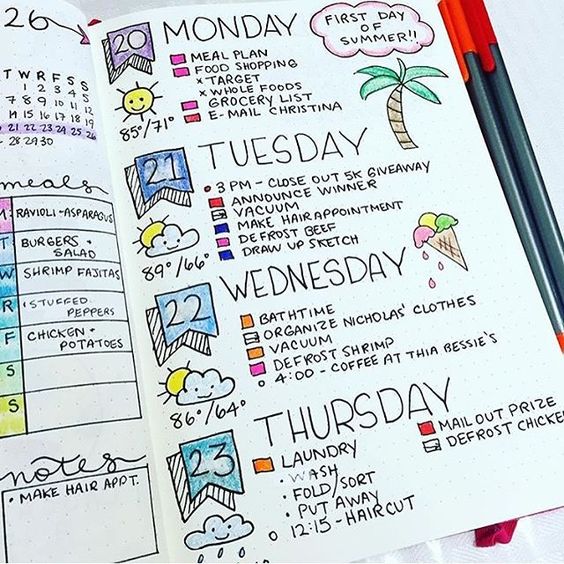 26
T W R F S S
1 2 3 4 5
7 8 9 10 11 12
14 15 16 17 18 19
20 21 22 23 24 25 26
28 29 30
meals
M: RAVIOLI - ASPARAGUS
T BURGERS + SALAD
W SHRIMP FAJITAS
R STUFFED PEPPERS
F CHICKEN + POTATOES
S
S
notes
• MAKE HAIR APPT.
20
MONDAY
FIRST DAY
OF
SUMMER!!
MEAL PLAN
FOOD SHOPPING
x TARGET
x WHOLE FOODS
GROCERY LIST
E-MAIL CHRISTINA
85°/71°
21
TUESDAY
3 PM - CLOSE OUT 5K GIVEAWAY
ANNOUNCE WINNER
VACUUM
MAKE HAIR APPOINTMENT
DEFROST BEEF
DRAW UP SKETCH
89°/66°
22
WEDNESDAY
BATHTIME
ORGANIZE NICHOLAS' CLOTHES
VACUUM
DEFROST SHRIMP
4:00 - COFFEE AT THIA BESSIE'S
86°/64°
23
THURSDAY
LAUNDRY
• WASH
• FOLD/SORT
• PUT AWAY
12:15 - HAIRCUT
MAIL OUT PRIZE
DEFROST CHICKE